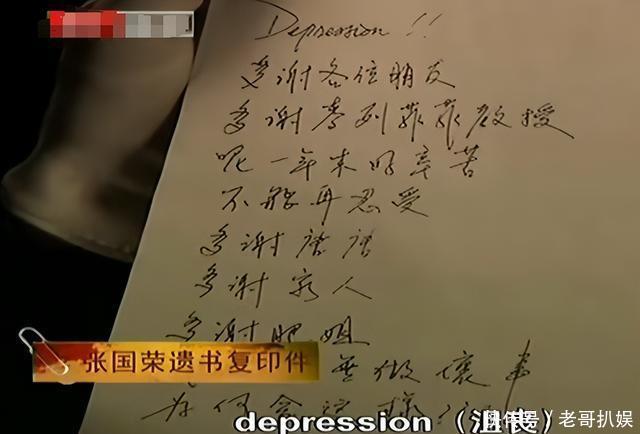 Depression!!
多谢各位朋友
多谢麦列菲菲教授
呢一年来好辛苦
不能再忍受
多谢唐唐
多谢家人
多谢肥姐
無做壞事
为何会這樣
张国荣遗书复印件
depression（沮丧）
快传号/老哥扒娱